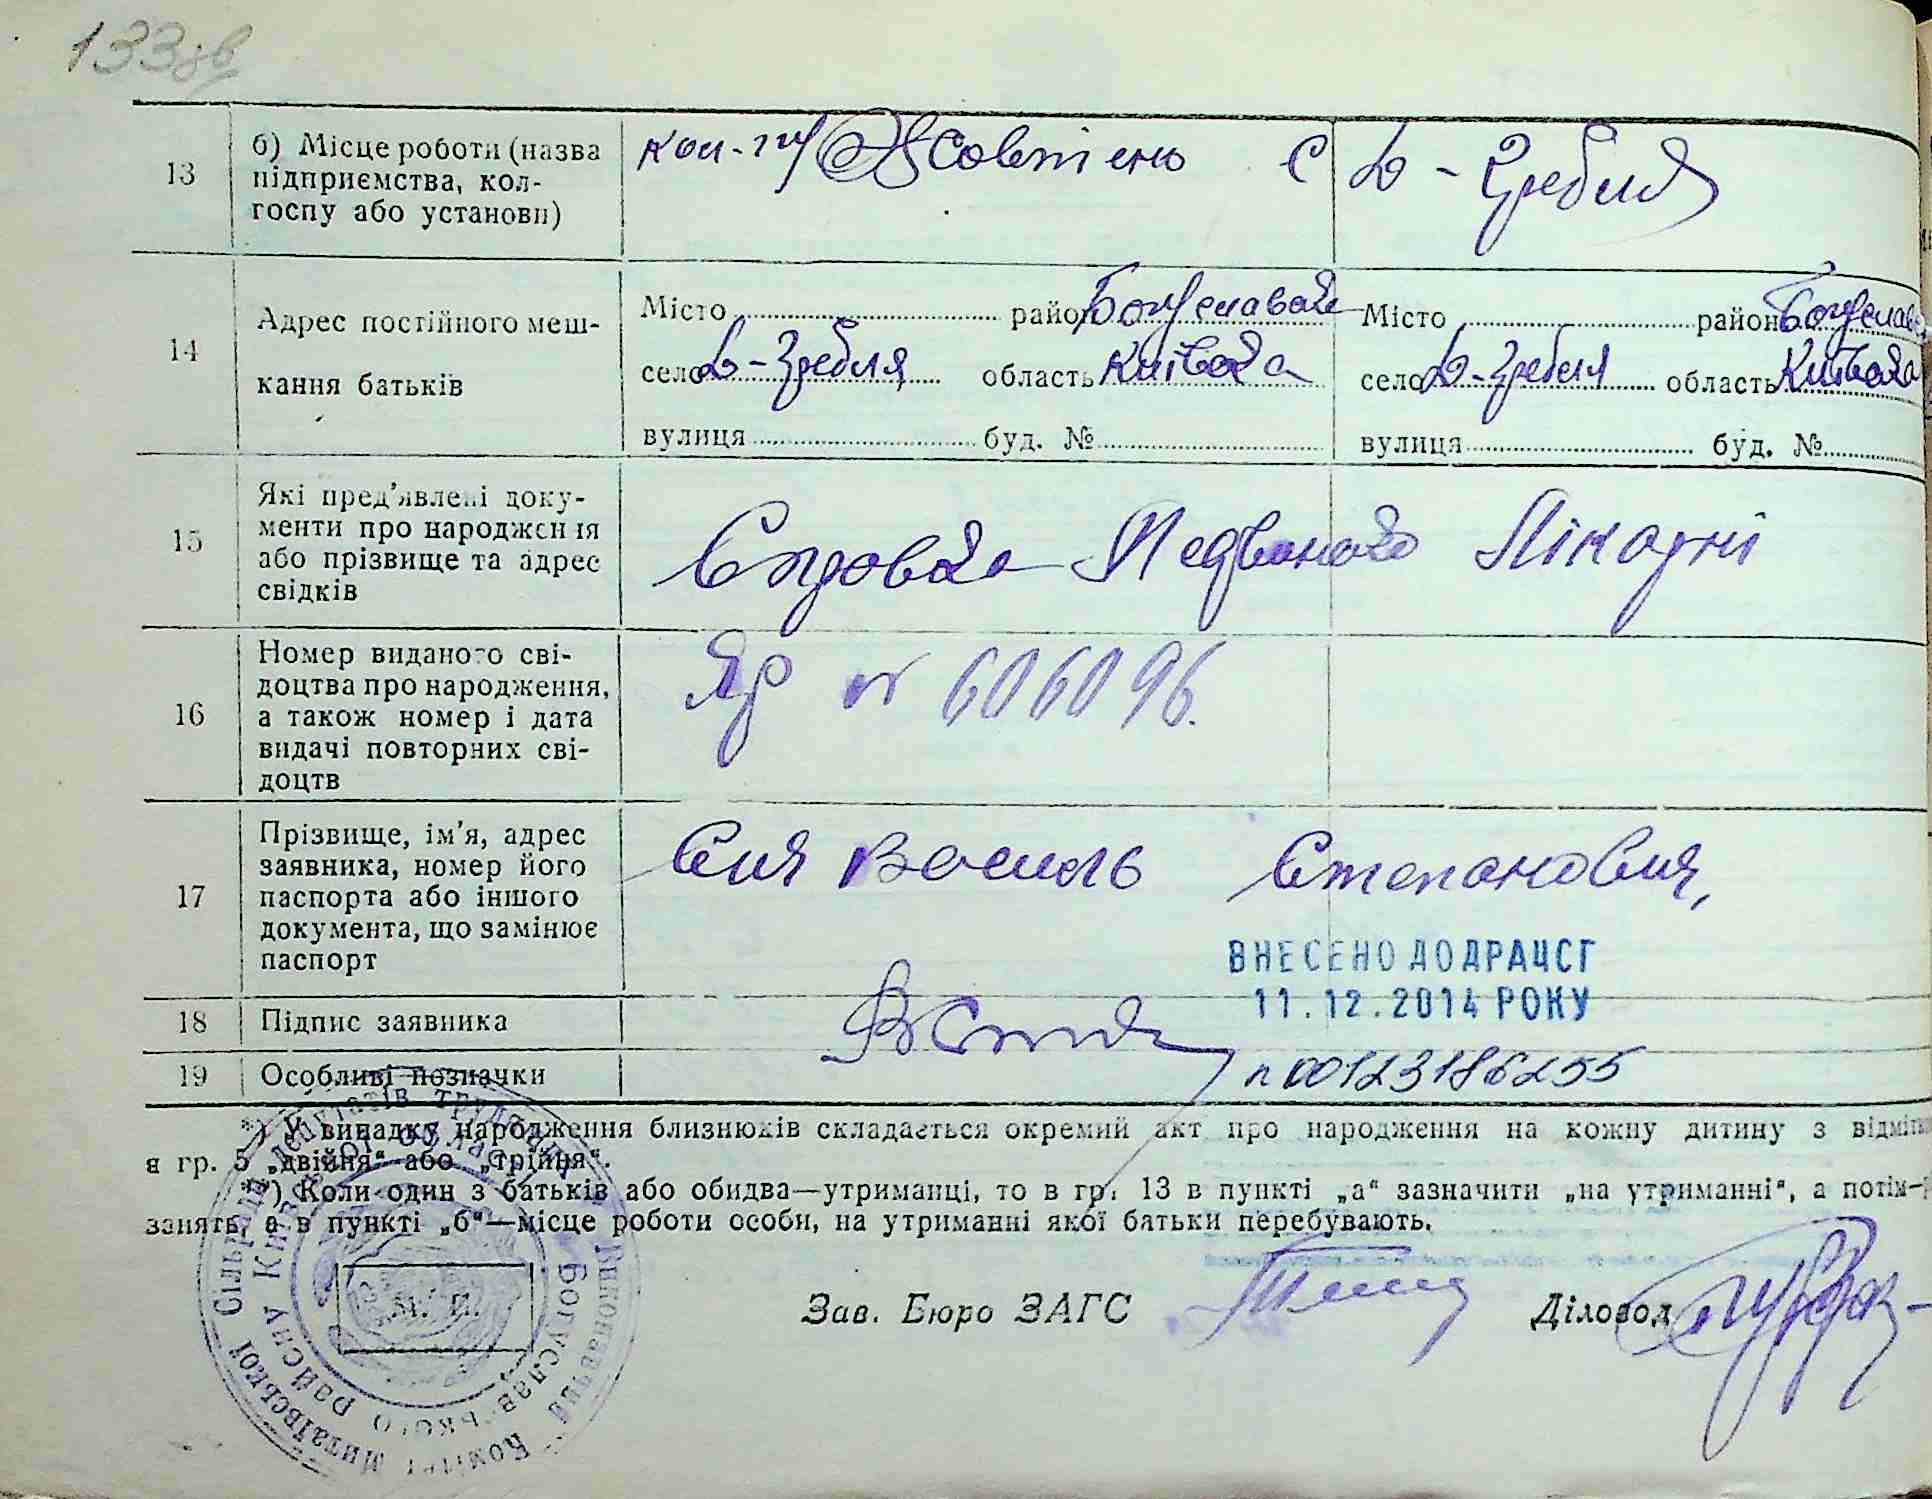 133зв
13 б) Місце роботи (назва підприємства, колгоспу або установи) кол-п Жовтень с Д-Гребля
14 Адрес постійного мешкання батьків
Місто район Богуславськ Місто район Богуславс
село Д-Гребля область Київська село Д-Гребля область Київська
вулиця буд. № вулиця буд. №
15 Які пред'явлені документи про народження або прізвище та адрес свідків Справка Медвинської Лікарні
16 Номер виданого свідоцтва про народження, а також номер і дата видачі повторних свідоцтв ЯР № 606096.
17 Прізвище, ім'я, адрес заявника, номер його паспорта або іншого документа, що замінює паспорт Василь Степанович,
ВНЕСЕНО ДО ДРАЦСГ
11.12.2014 РОКУ
18 Підпис заявника
19 Особливі позначки n 00123186255
*) У випадку народження близнюків складається окремий акт про народження на кожну дитину з відміт
в гр. 5 „двійня" або „трійня".
**) Коли один з батьків або обидва—утриманці, то в гр. 13 в пункті „а" зазначити „на утриманні", а потім—
занять, а в пункті „б"—місце роботи особи, на утриманні якої батьки перебувають.
М. П.
Зав. Бюро ЗАГС Діловод
Виконавчий Комітет Митаївської Сільради депутатів трудящих
Богуславського району Київської області